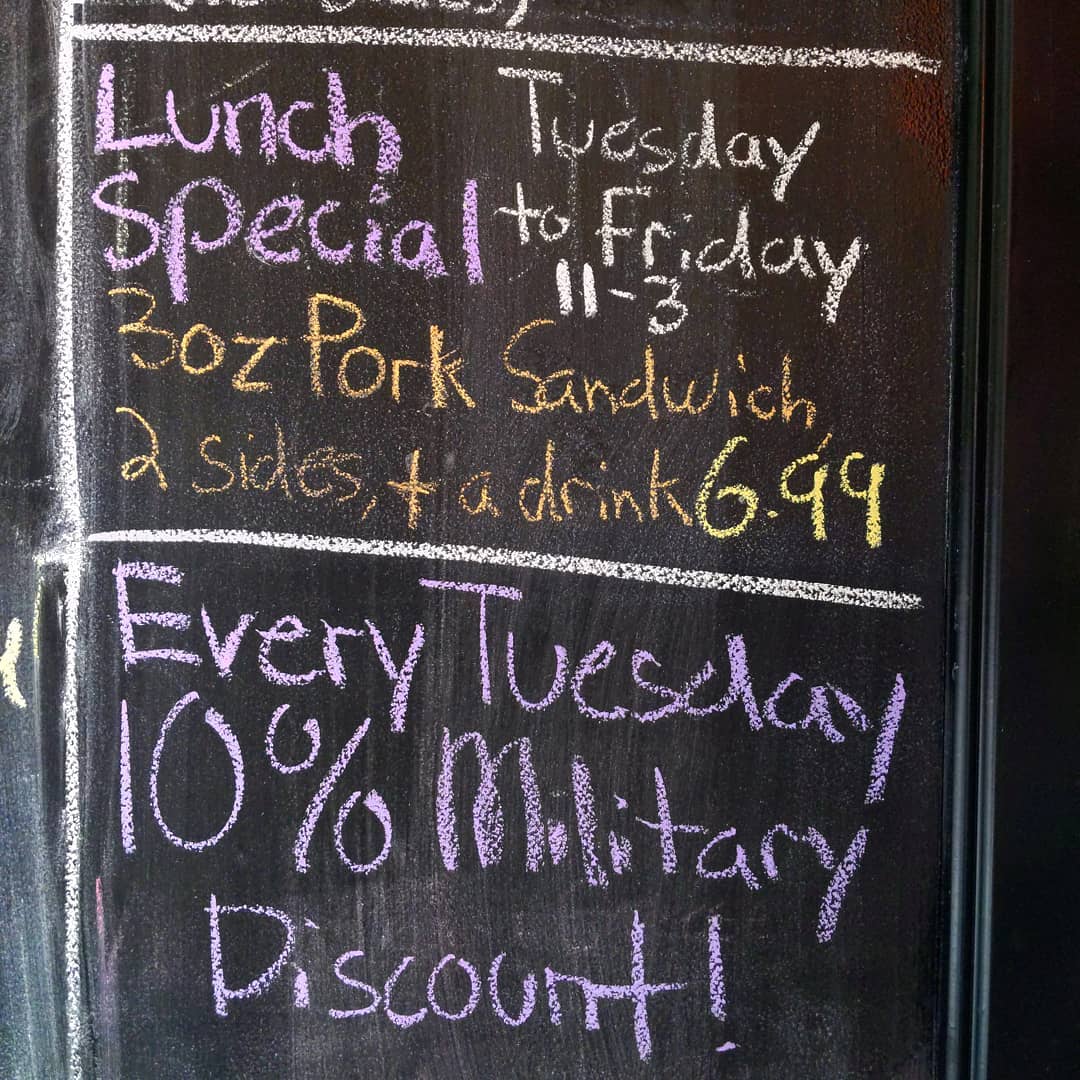 Lunch Special
Tuesday
to Friday
11-3
3oz Pork Sandwich,
2 sides, + a drink 6.99
Every Tuesday
10% Military
Discount!